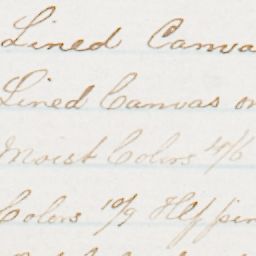 Lined Canva
Lined Canvas on
Moist Colors 4/6
Colors 10/9 Hlf